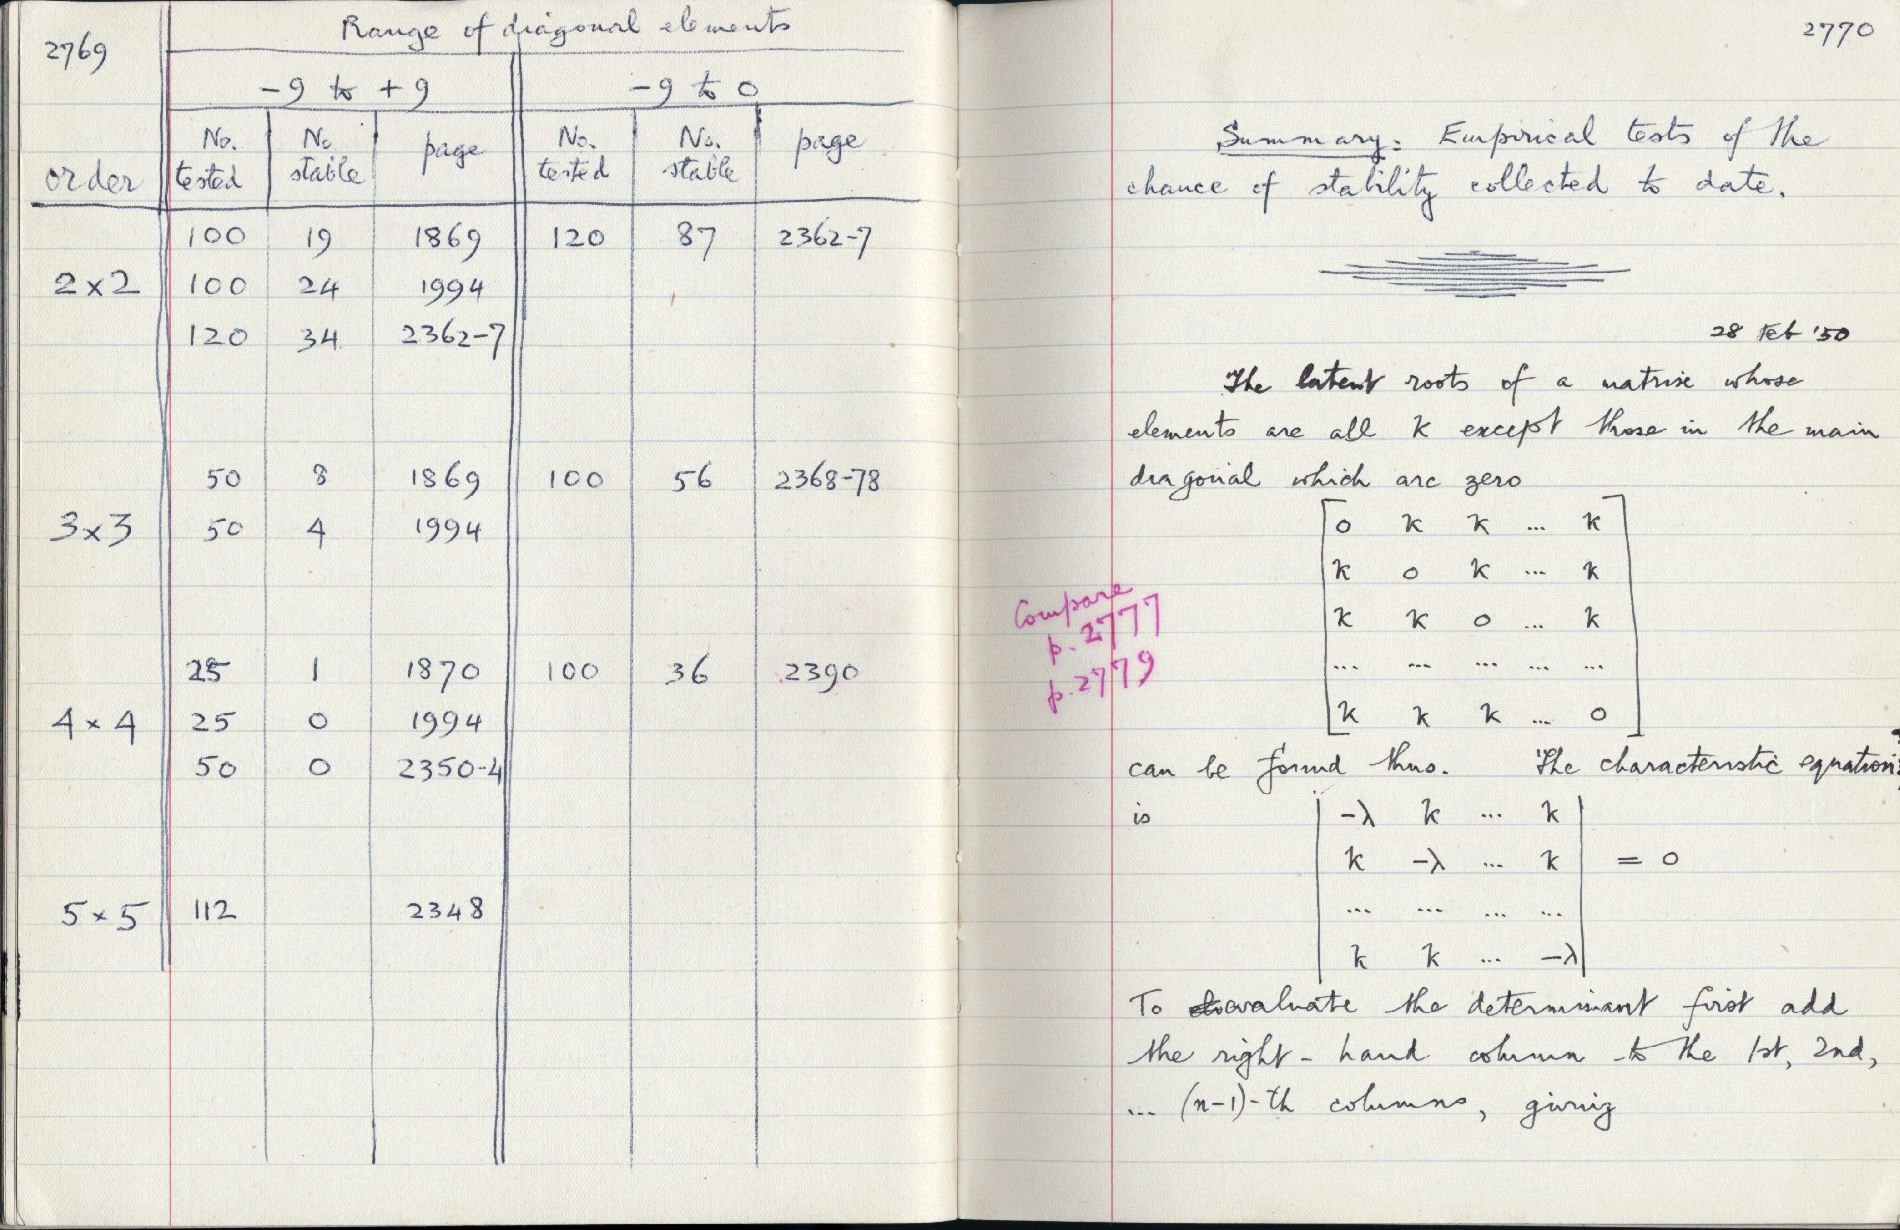 2769
Range of diagonal elements
-9 to +9 -9 to 0
order No. tested No stable page No. tested No. stable page
100 19 1869 120 87 2362-7
2×2 100 24 1994
120 34 2362-7
50 8 1869 100 56 2368-78
3×3 50 4 1994
25 1 1870 100 36 2390
4×4 25 0 1994
50 0 2350-4
5×5 112 2348
2770
Summary: Empirical tests of the
chance of stability collected to date.
28 Feb '50
The latent roots of a matrix whose
elements are all k except those in the main
diagonal which are zero
0 k k ... k
k 0 k ... k
k k 0 ... k
... ... ... ... ...
k k k ... 0
Compare
p. 2777
p. 2779
can be found thus. The characteristic equation
is
-λ k ... k
k -λ ... k = 0
... ... ... ...
k k ... -λ
To evaluate the determinant first add
the right-hand column to the 1st, 2nd,
... (n-1)-th columns, giving